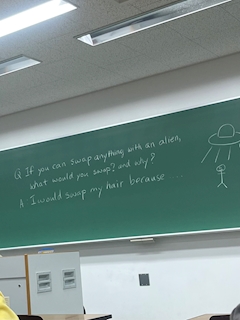 Q. If you can swap anything with an alien,
what would you swap? and why?
A. I would swap my hair because ..